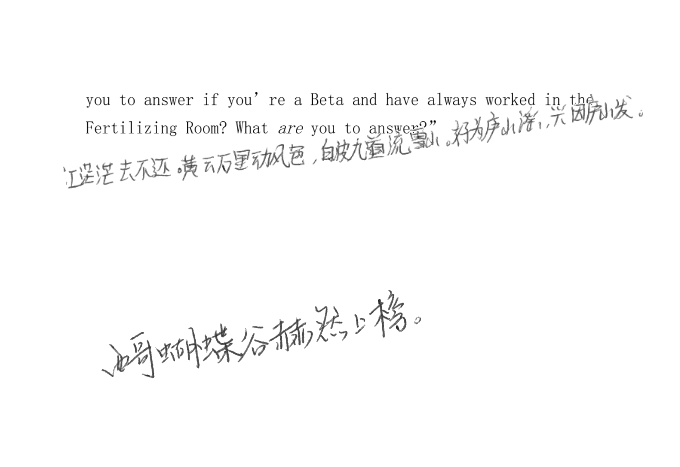 you to answer if you’re a Beta and have always worked in the
Fertilizing Room? What are you to answer?”
江茫茫去不还。黄云万里动风色，白波九道流雪山。好为庐山谣，兴因庐山发。
哥蝴蝶谷赫然上榜。